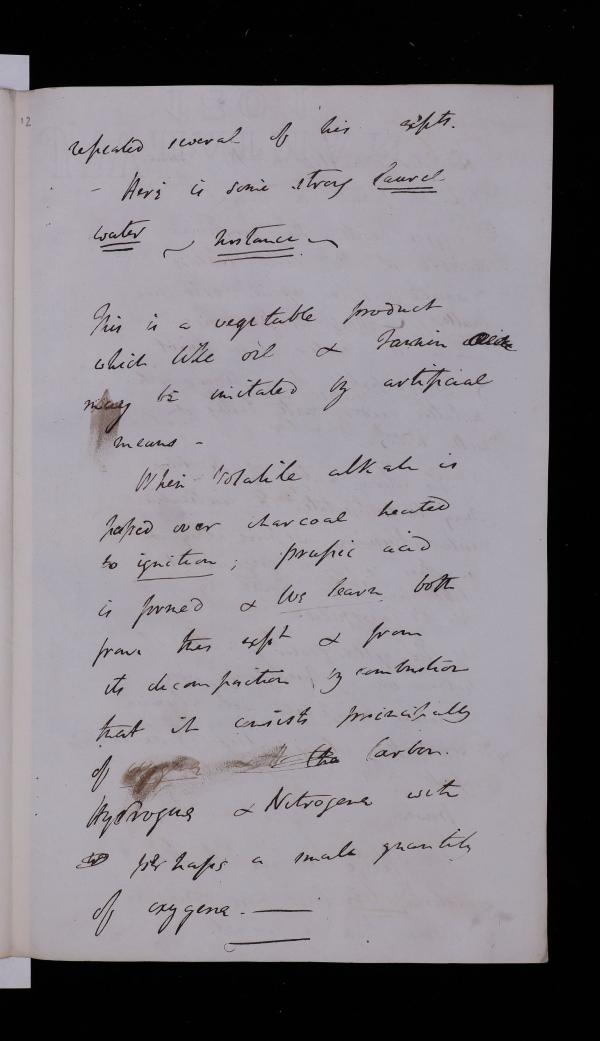 12
repeated several of his expts.
- Here is some strong laurel
water ~ Instance ~
This is a vegetable product
which like oil & Tannin
may be imitated by artificial
means -
When Volatile alkali is
passed over charcoal heated
to ignition ; prussic acid
is formed & we learn both
from this expt & from
its decomposition by combustion
that it consists principally
of Carbon.
Hydrogene & Nitrogene with
perhaps a small quantity
of oxygene. —